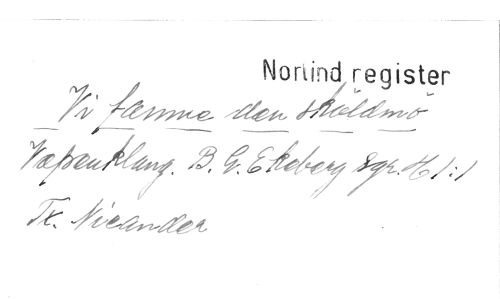 Norlind register
Vi famna den sköldmö
Vapenklang. B. G. Ekeberg Sgr. H 1:1
Tx. Nicander